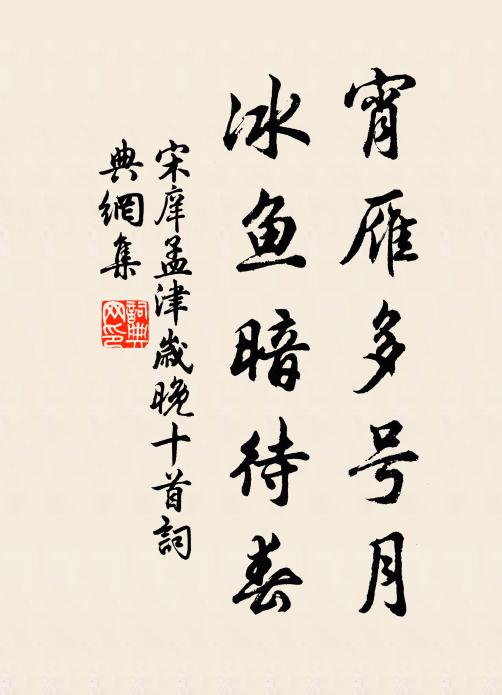 宵雁多号月
冰鱼暗待春
宋庠孟津歲晚十首詞
典網集
詞典网印